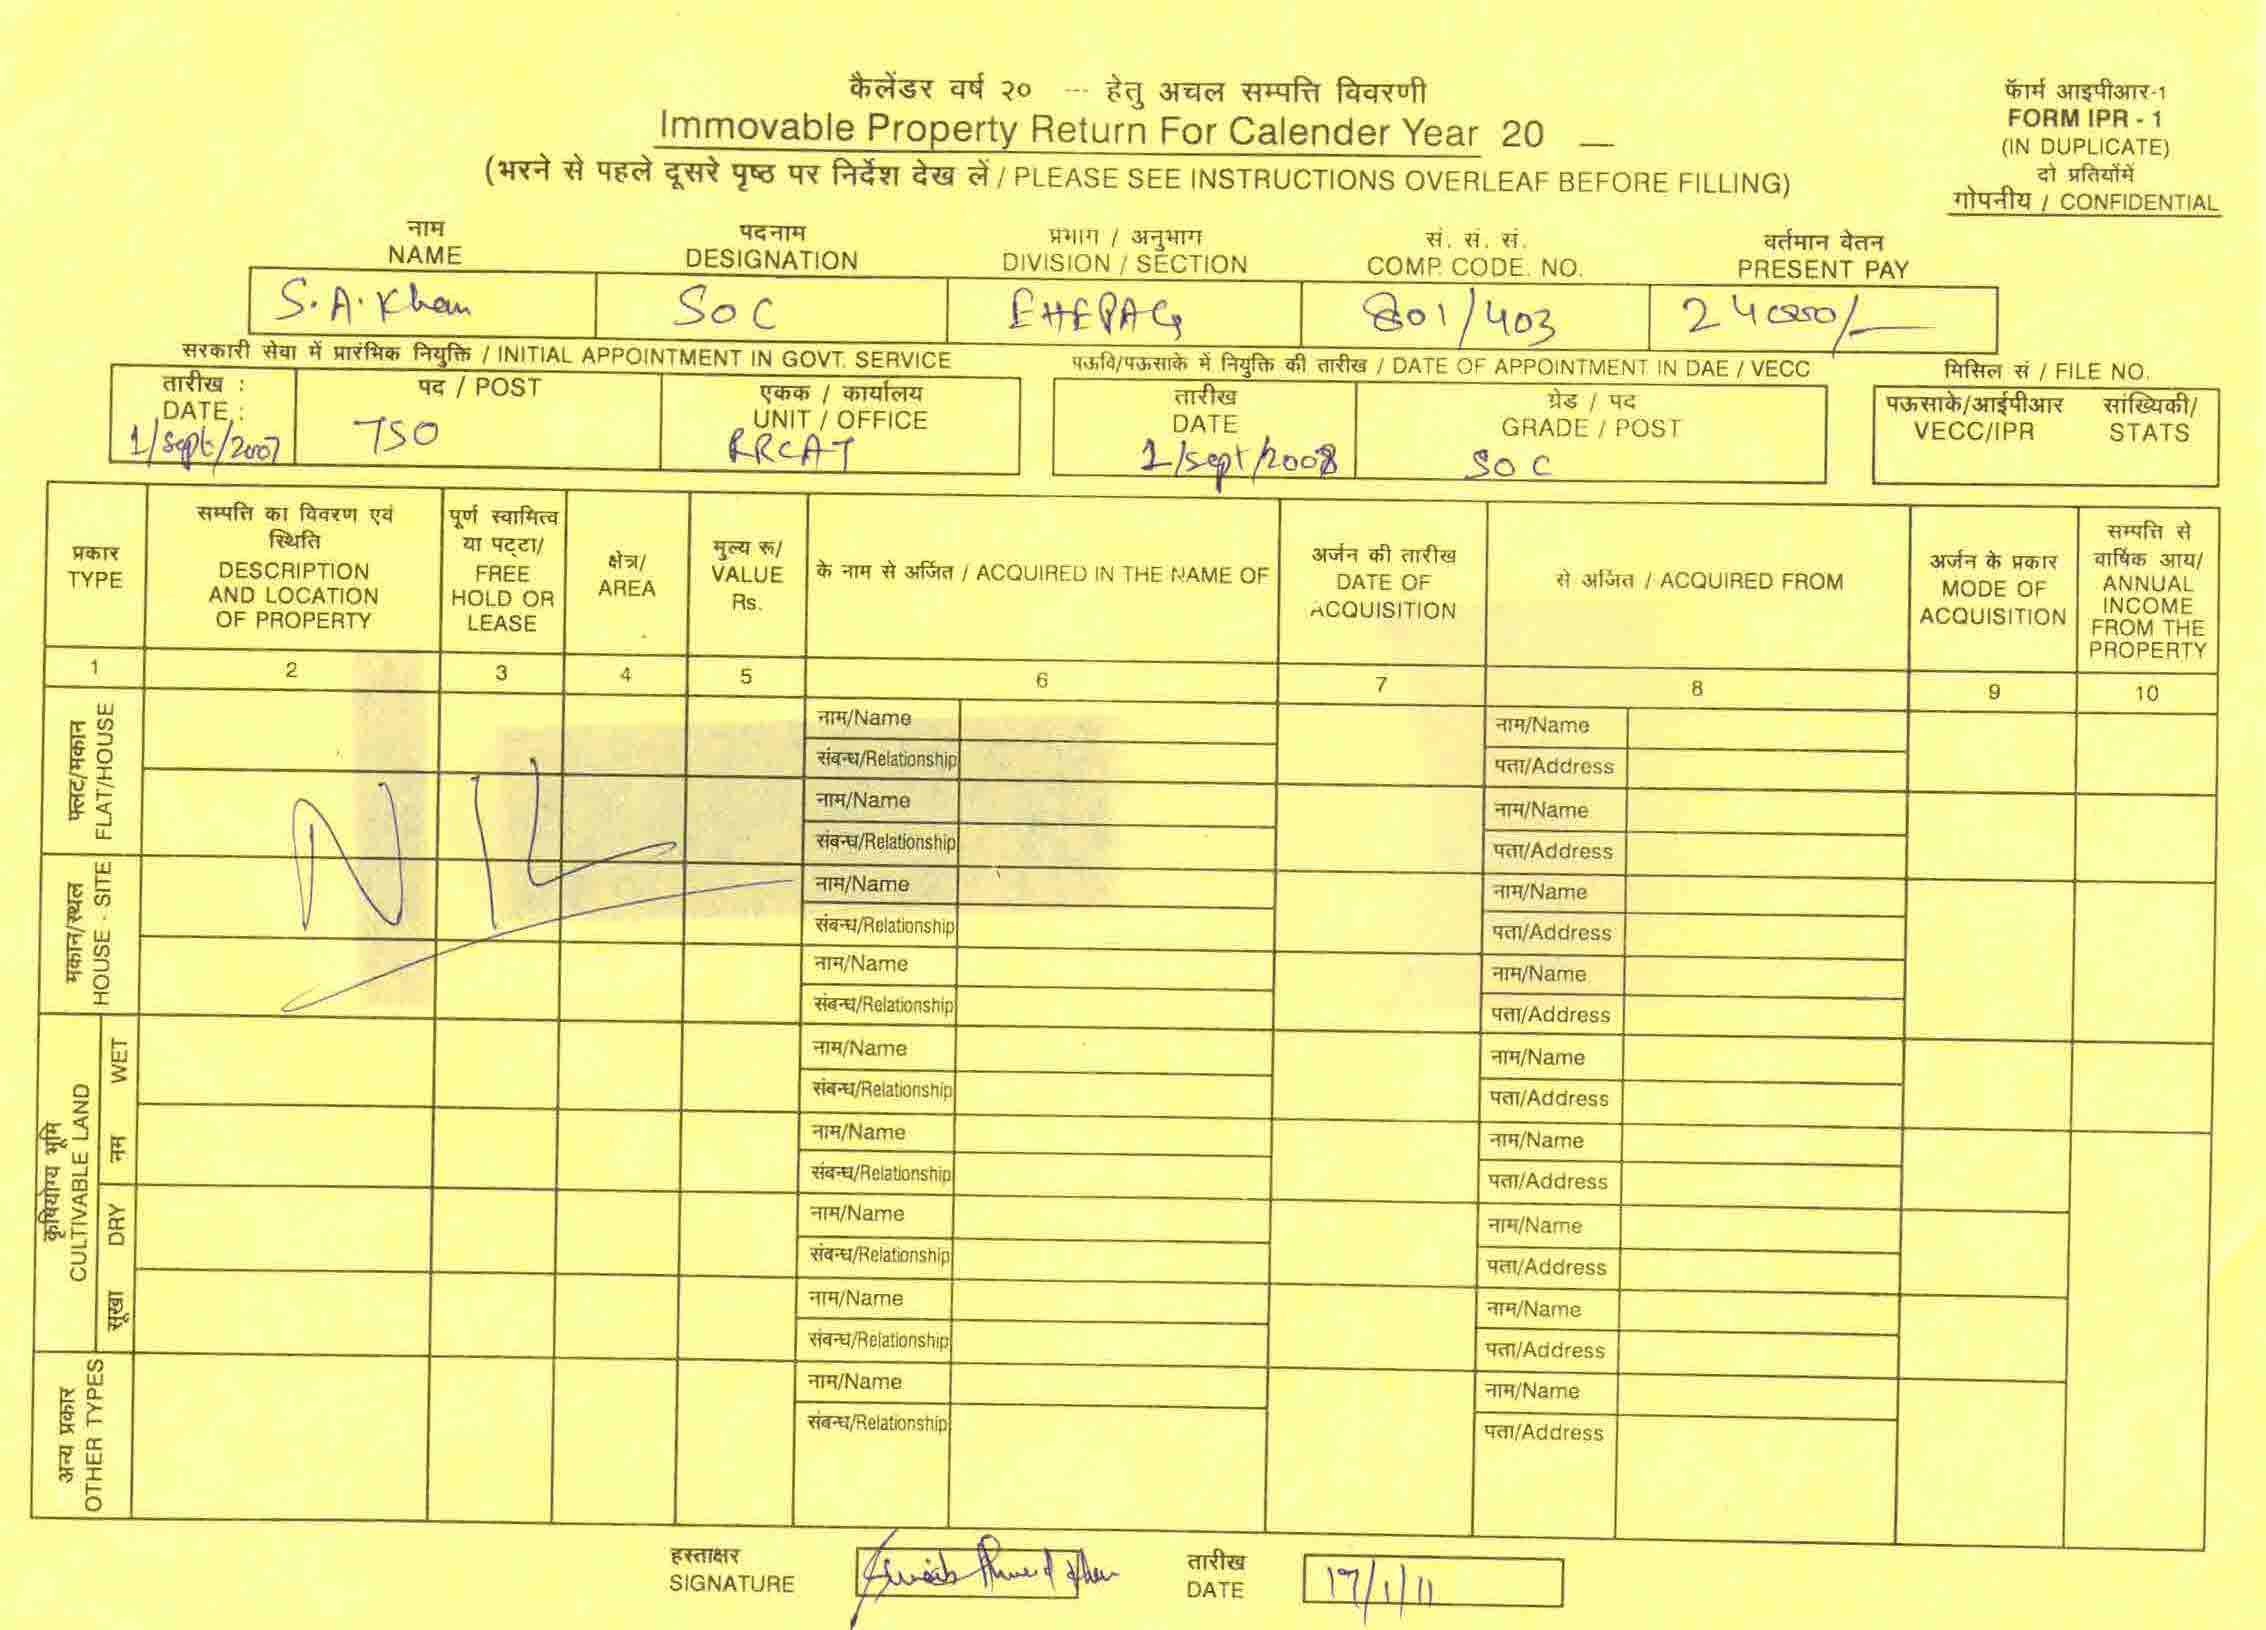 कैलेंडर वर्ष २० --- हेतु अचल सम्पत्ति विवरणी
Immovable Property Return For Calender Year 20 __
(भरने से पहले दूसरे पृष्ठ पर निर्देश देख लें / PLEASE SEE INSTRUCTIONS OVERLEAF BEFORE FILLING)
फॅार्म आइपीआर-१
FORM IPR - 1
(IN DUPLICATE)
दो प्रतियोंमें
गोपनीय / CONFIDENTIAL
नाम पदनाम प्रभाग / अनुभाग सं. सं. सं. वर्तमान वेतन
NAME DESIGNATION DIVISION / SECTION COMP. CODE. NO. PRESENT PAY
S.A. Khan SOC EHEPAG 801/403
सरकारी सेवा में प्रारंमिक नियुक्ति / INITIAL APPOINTMENT IN GOVT. SERVICE
तारीख : पद / POST एकक / कार्यालय
DATE : UNIT / OFFICE
1/Sept/2007 TSO RRCAT
पऊवि/पऊसाके में नियुक्ति की तारीख / DATE OF APPOINTMENT IN DAE / VECC
तारीख ग्रेड / पद
DATE GRADE / POST
1/Sept/2008 SOC
मिसिल सं / FILE NO.
पऊसाके/आईपीआर सांख्यिकी/
VECC/IPR STATS
प्रकार
TYPE
सम्पत्ति का विवरण एवं
स्थिति
DESCRIPTION
AND LOCATION
OF PROPERTY
पूर्ण स्वामित्व
या पट्टा/
FREE
HOLD OR
LEASE
क्षेत्र/
AREA
मुल्य रू/
VALUE
Rs.
के नाम से अर्जित / ACQUIRED IN THE NAME OF
अर्जन की तारीख
DATE OF
ACQUISITION
से अर्जित / ACQUIRED FROM
अर्जन के प्रकार
MODE OF
ACQUISITION
सम्पत्ति से
वार्षिक आय/
ANNUAL
INCOME
FROM THE
PROPERTY
1 2 3 4 5 6 7 8 9 10
फ्लट/मकान
FLAT/HOUSE
नाम/Name नाम/Name
संबन्ध/Relationship पता/Address
नाम/Name नाम/Name
संबन्ध/Relationship पता/Address
NIL
मकान/स्थल
HOUSE - SITE
नाम/Name नाम/Name
संबन्ध/Relationship पता/Address
नाम/Name नाम/Name
संबन्ध/Relationship पता/Address
कृषियोग्य भूमि
CULTIVABLE LAND
नम WET
नाम/Name नाम/Name
संबन्ध/Relationship पता/Address
नाम/Name नाम/Name
संबन्ध/Relationship पता/Address
सूखा DRY
नाम/Name नाम/Name
संबन्ध/Relationship पता/Address
नाम/Name नाम/Name
संबन्ध/Relationship पता/Address
अन्य प्रकार
OTHER TYPES
नाम/Name नाम/Name
संबन्ध/Relationship पता/Address
हस्ताक्षर तारीख
SIGNATURE Ahmed Khan DATE 17/1/11